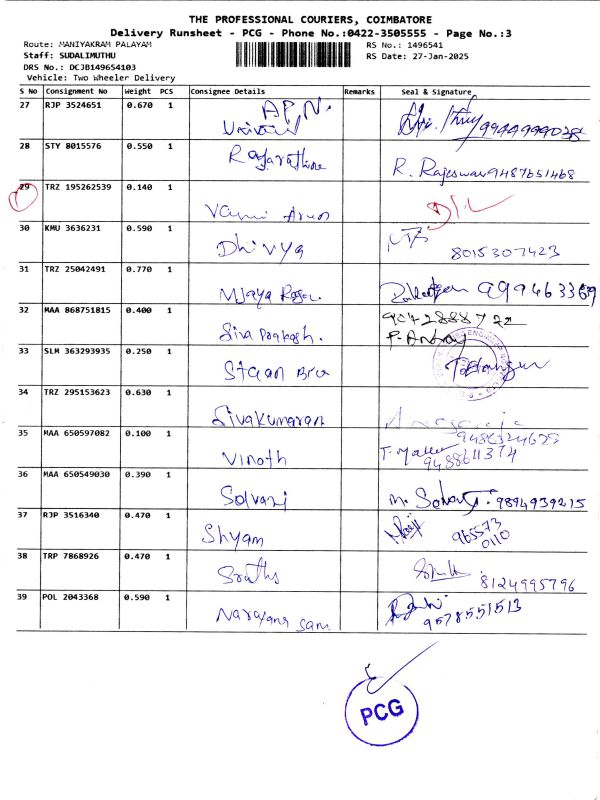 THE PROFESSIONAL COURIERS, COIMBATORE
Delivery Runsheet - PCG - Phone No.:0422-3505555 - Page No.:3
Route: MANIYAKRAM PALAYAM RS No.: 1496541
Staff: SUDALIMUTHU RS Date: 27-Jan-2025
DRS No.: DCJB149654103
Vehicle: Two Wheeler Delivery
S No Consignment No Weight PCS Consignee Details Remarks Seal & Signature
27 RJP 3524651 0.670 1 A.P.N.
28 STY 8015576 0.550 1 R. Rajeswari 9487651468
29 TRZ 195262539 0.140 1 Vanni Arun
30 KMU 3636231 0.590 1 Dhivya 8015307423
31 TRZ 25042491 0.770 1
32 MAA 868751815 0.400 1 Siva Prakash.
33 SLM 363293935 0.250 1
34 TRZ 295153623 0.630 1 Sivakumaran
35 MAA 650597082 0.100 1 Vinoth 9488611374
36 MAA 650549030 0.390 1 Selvani 9894939215
37 RJP 3516340 0.470 1 Shyam 965573
0110
38 TRP 7868926 0.470 1 8124995796
39 POL 2043368 0.590 1 Narayana sam 9578551513
PCG